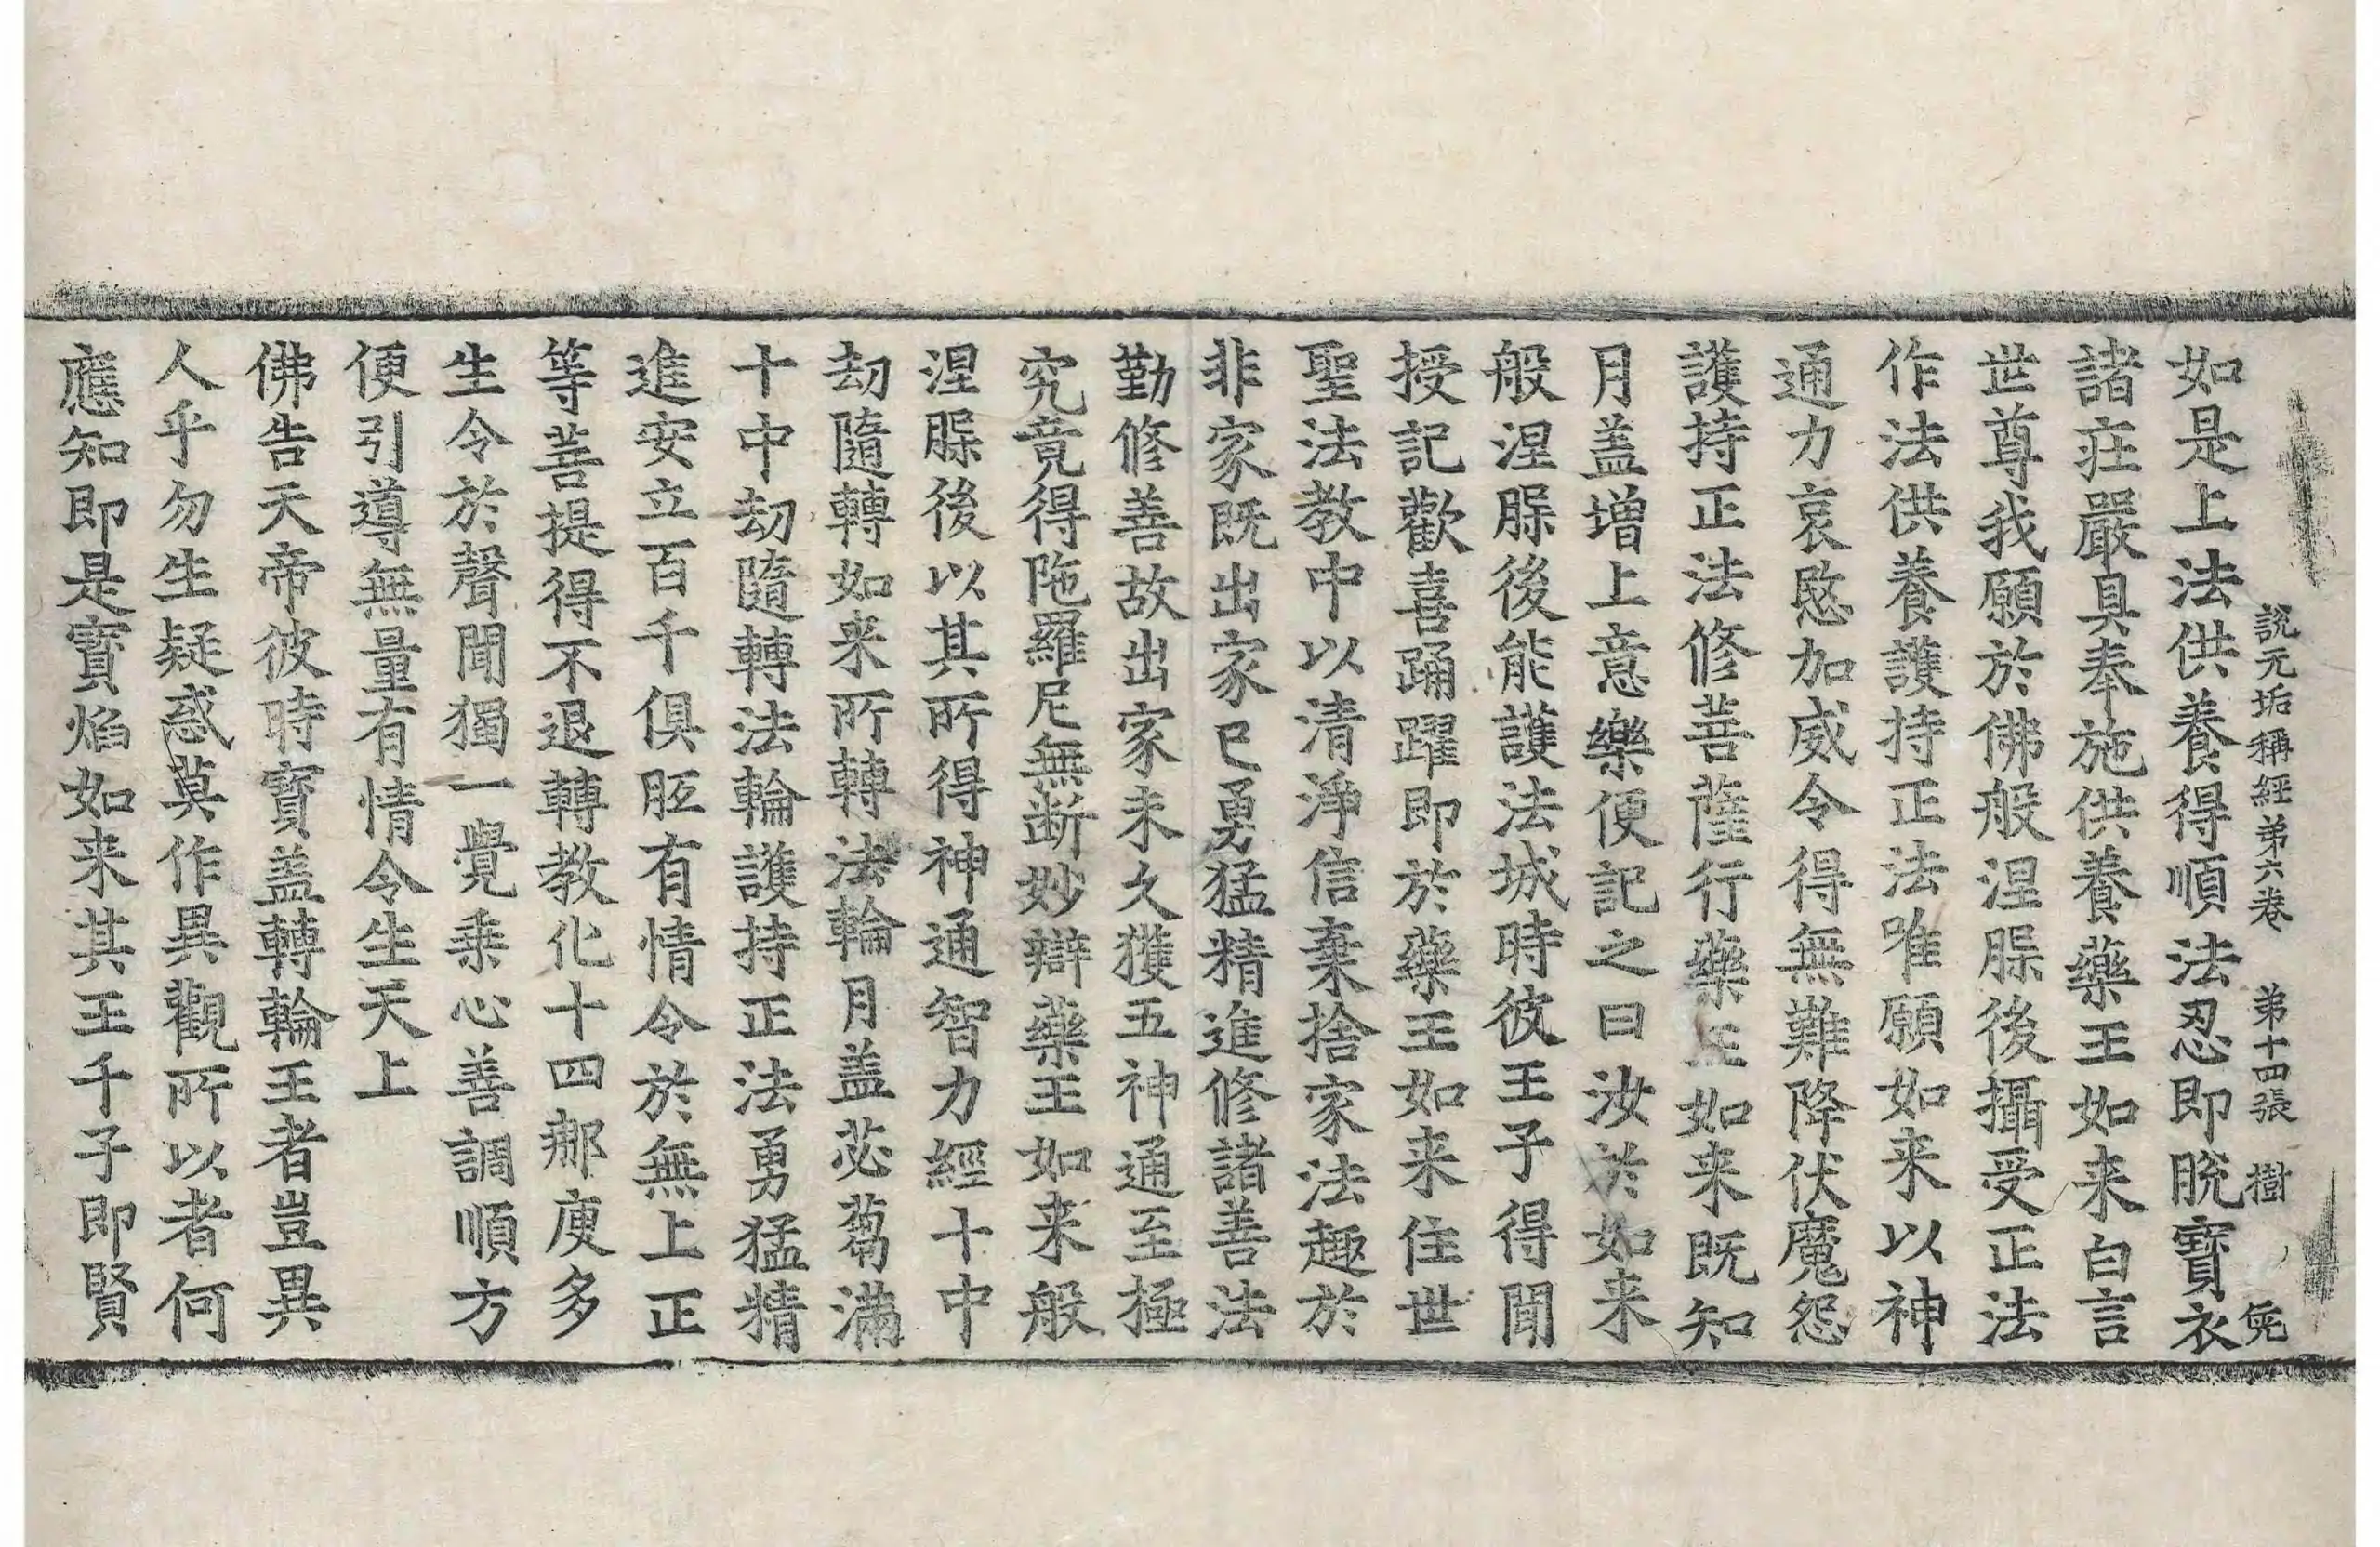 說无垢稱經弟六卷 弟十四張 樹
如是上法供養得順法忍即脫寶衣
諸庄嚴具奉施供養藥王如来白言
世尊我願於佛般涅䐑後攝受正法
作法供養護持正法唯願如来以神
通力哀愍加威令得無難降伏魔怨
護持正法修菩薩行藥王如来既知
月盖增上意樂便記之曰汝於如来
般涅䐑後能護法城時彼王子得聞
授記歡喜踊躍即於藥王如来住世
聖法教中以清淨信棄捨家法趣於
非家既出家已勇猛精進修諸善法
勤修善故出家未久獲五神通至極
究竟得陁羅尼無断妙辯藥王如来般
涅䐑後以其所得神通智力經十中
劫隨轉如来所轉法輪月盖苾蒭滿
十中劫隨轉法輪護持正法勇猛精
進安立百千俱胝有情令於無上正
等菩提得不退轉教化十四那庾多
生令於聲聞獨一覺乗心善調順方
便引導無量有情令生天上
佛告天帝彼時寶盖轉輪王者豈異
人乎勿生疑惑莫作異觀所以者何
應知即是寶焰如来其王千子即賢